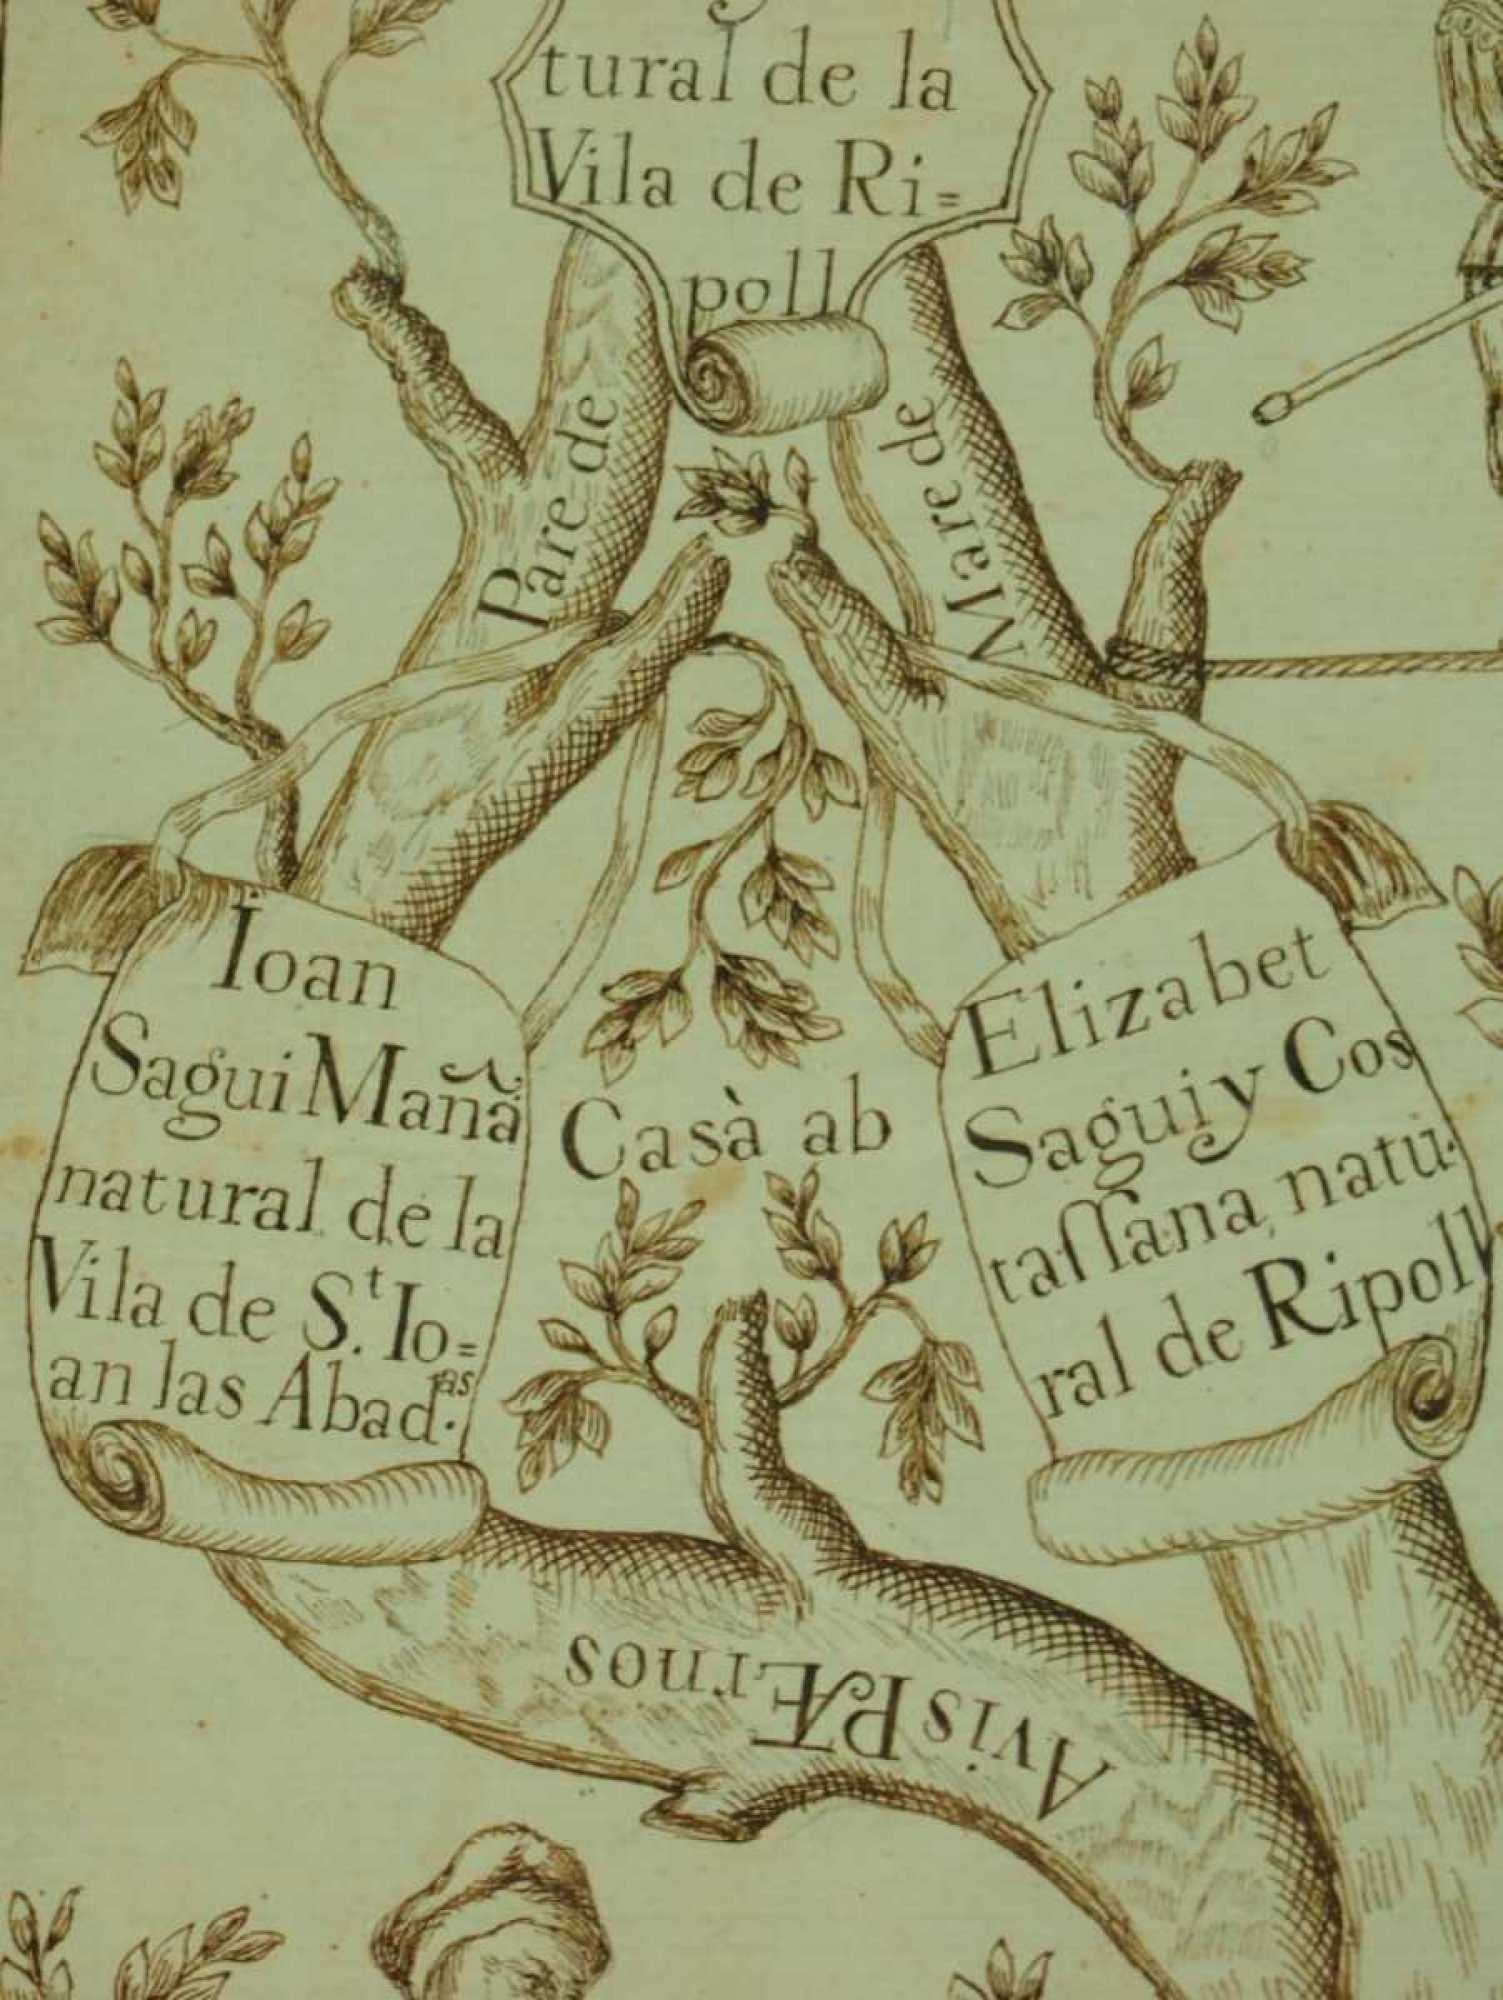 tural de la
Vila de Ri=
poll
Pare de
Mare de
Ioan
Sagui Mañà
natural de la
Vila de S.t Io=
an las Abad.as
Casà ab
Elizabet
Sagui y Cos
taſſana natu.
ral de Ripoll
Avis PÆrnos